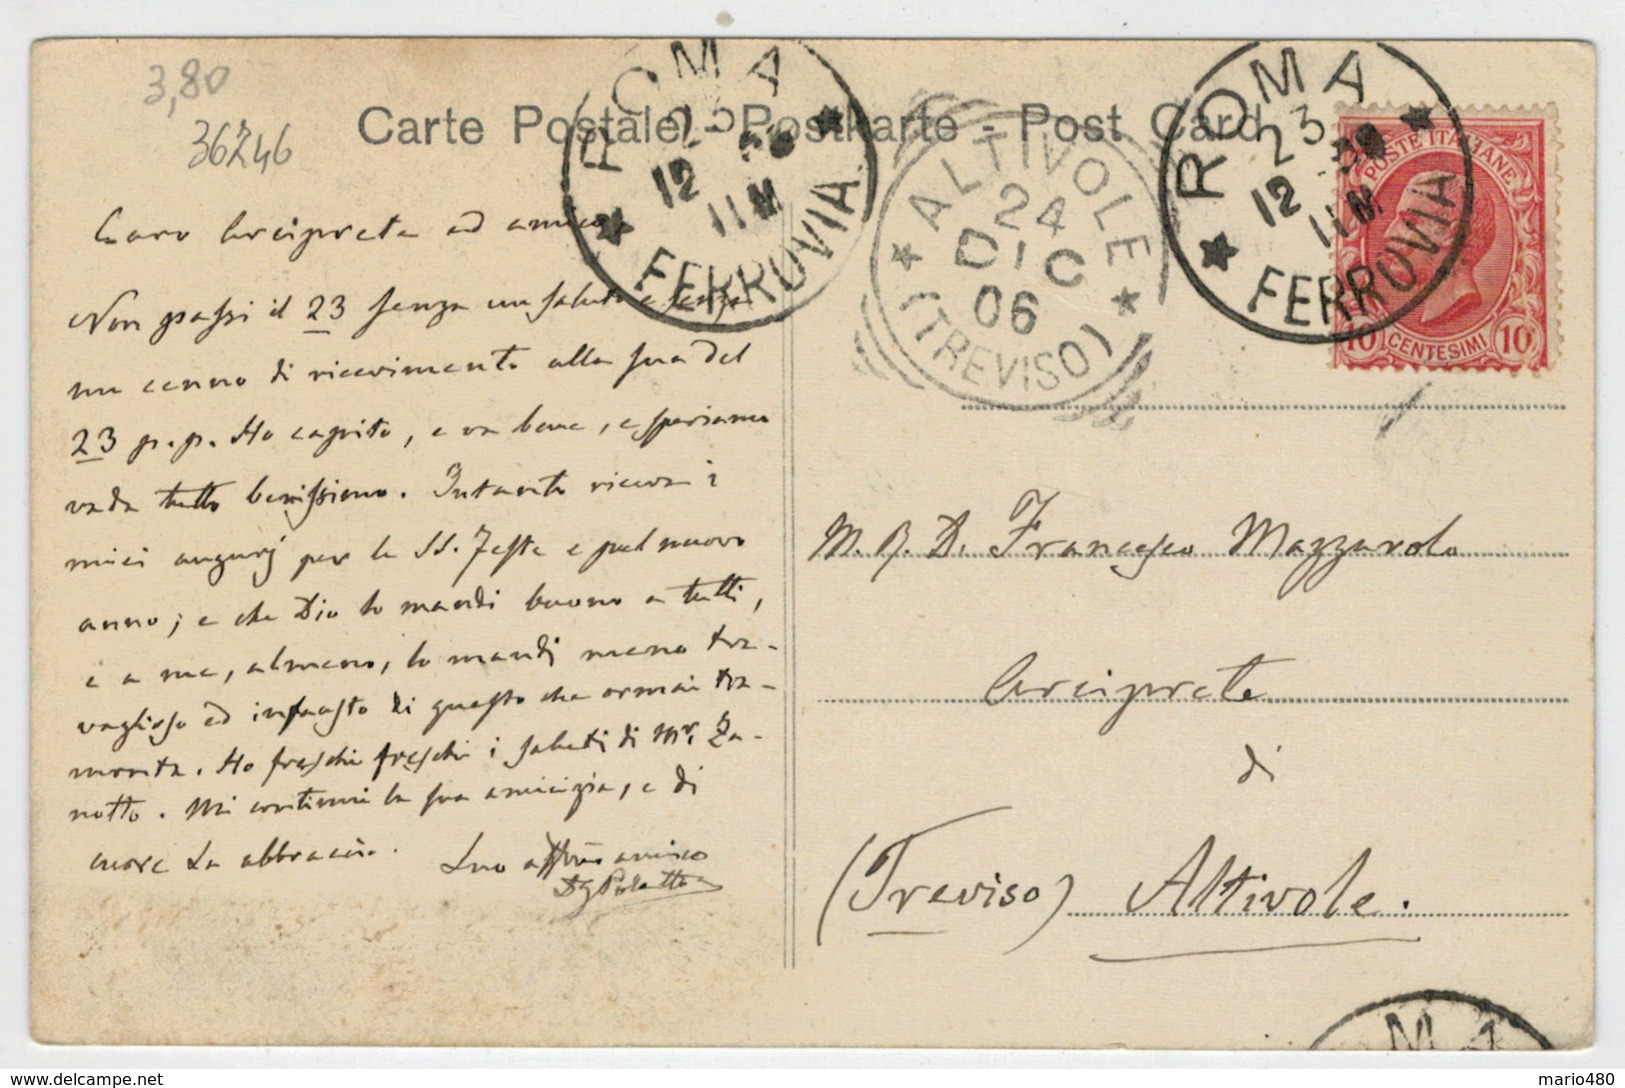 3,80
36246
Carte Postale - Postkarte - Post Card
ROMA FERRUVIA
23 12 11M
ALTIVOLE (TREVISO)
24 DIC 06
ROMA FERRUVIA
23 12 11M
POSTE ITALIANE
10 CENTESIMI 10
Caro Arciprete ed amico,
Non passi il 23 senza un saluto e senza
un cenno di ricevimento alla sua del
23 p.p. Ho capito, e va bene, e speriamo
vada tutto benissimo. Intanto riceva i
miei augurj per le SS. Feste e pel nuovo
anno; e che Dio lo mandi buono a tutti,
e a me, almeno, lo mandi meno tra-
vaglioso ed infausto di questo che ormai tra-
monta. Ho freschi freschi i saluti di Mr. Za-
notto. Mi continui la sua amicizia, e di
cuore La abbraccio.
Suo affmo amico
M. R. D. Francesco Mazzarolo
Arciprete
di
(Treviso) Altivole.
OMA
mario480